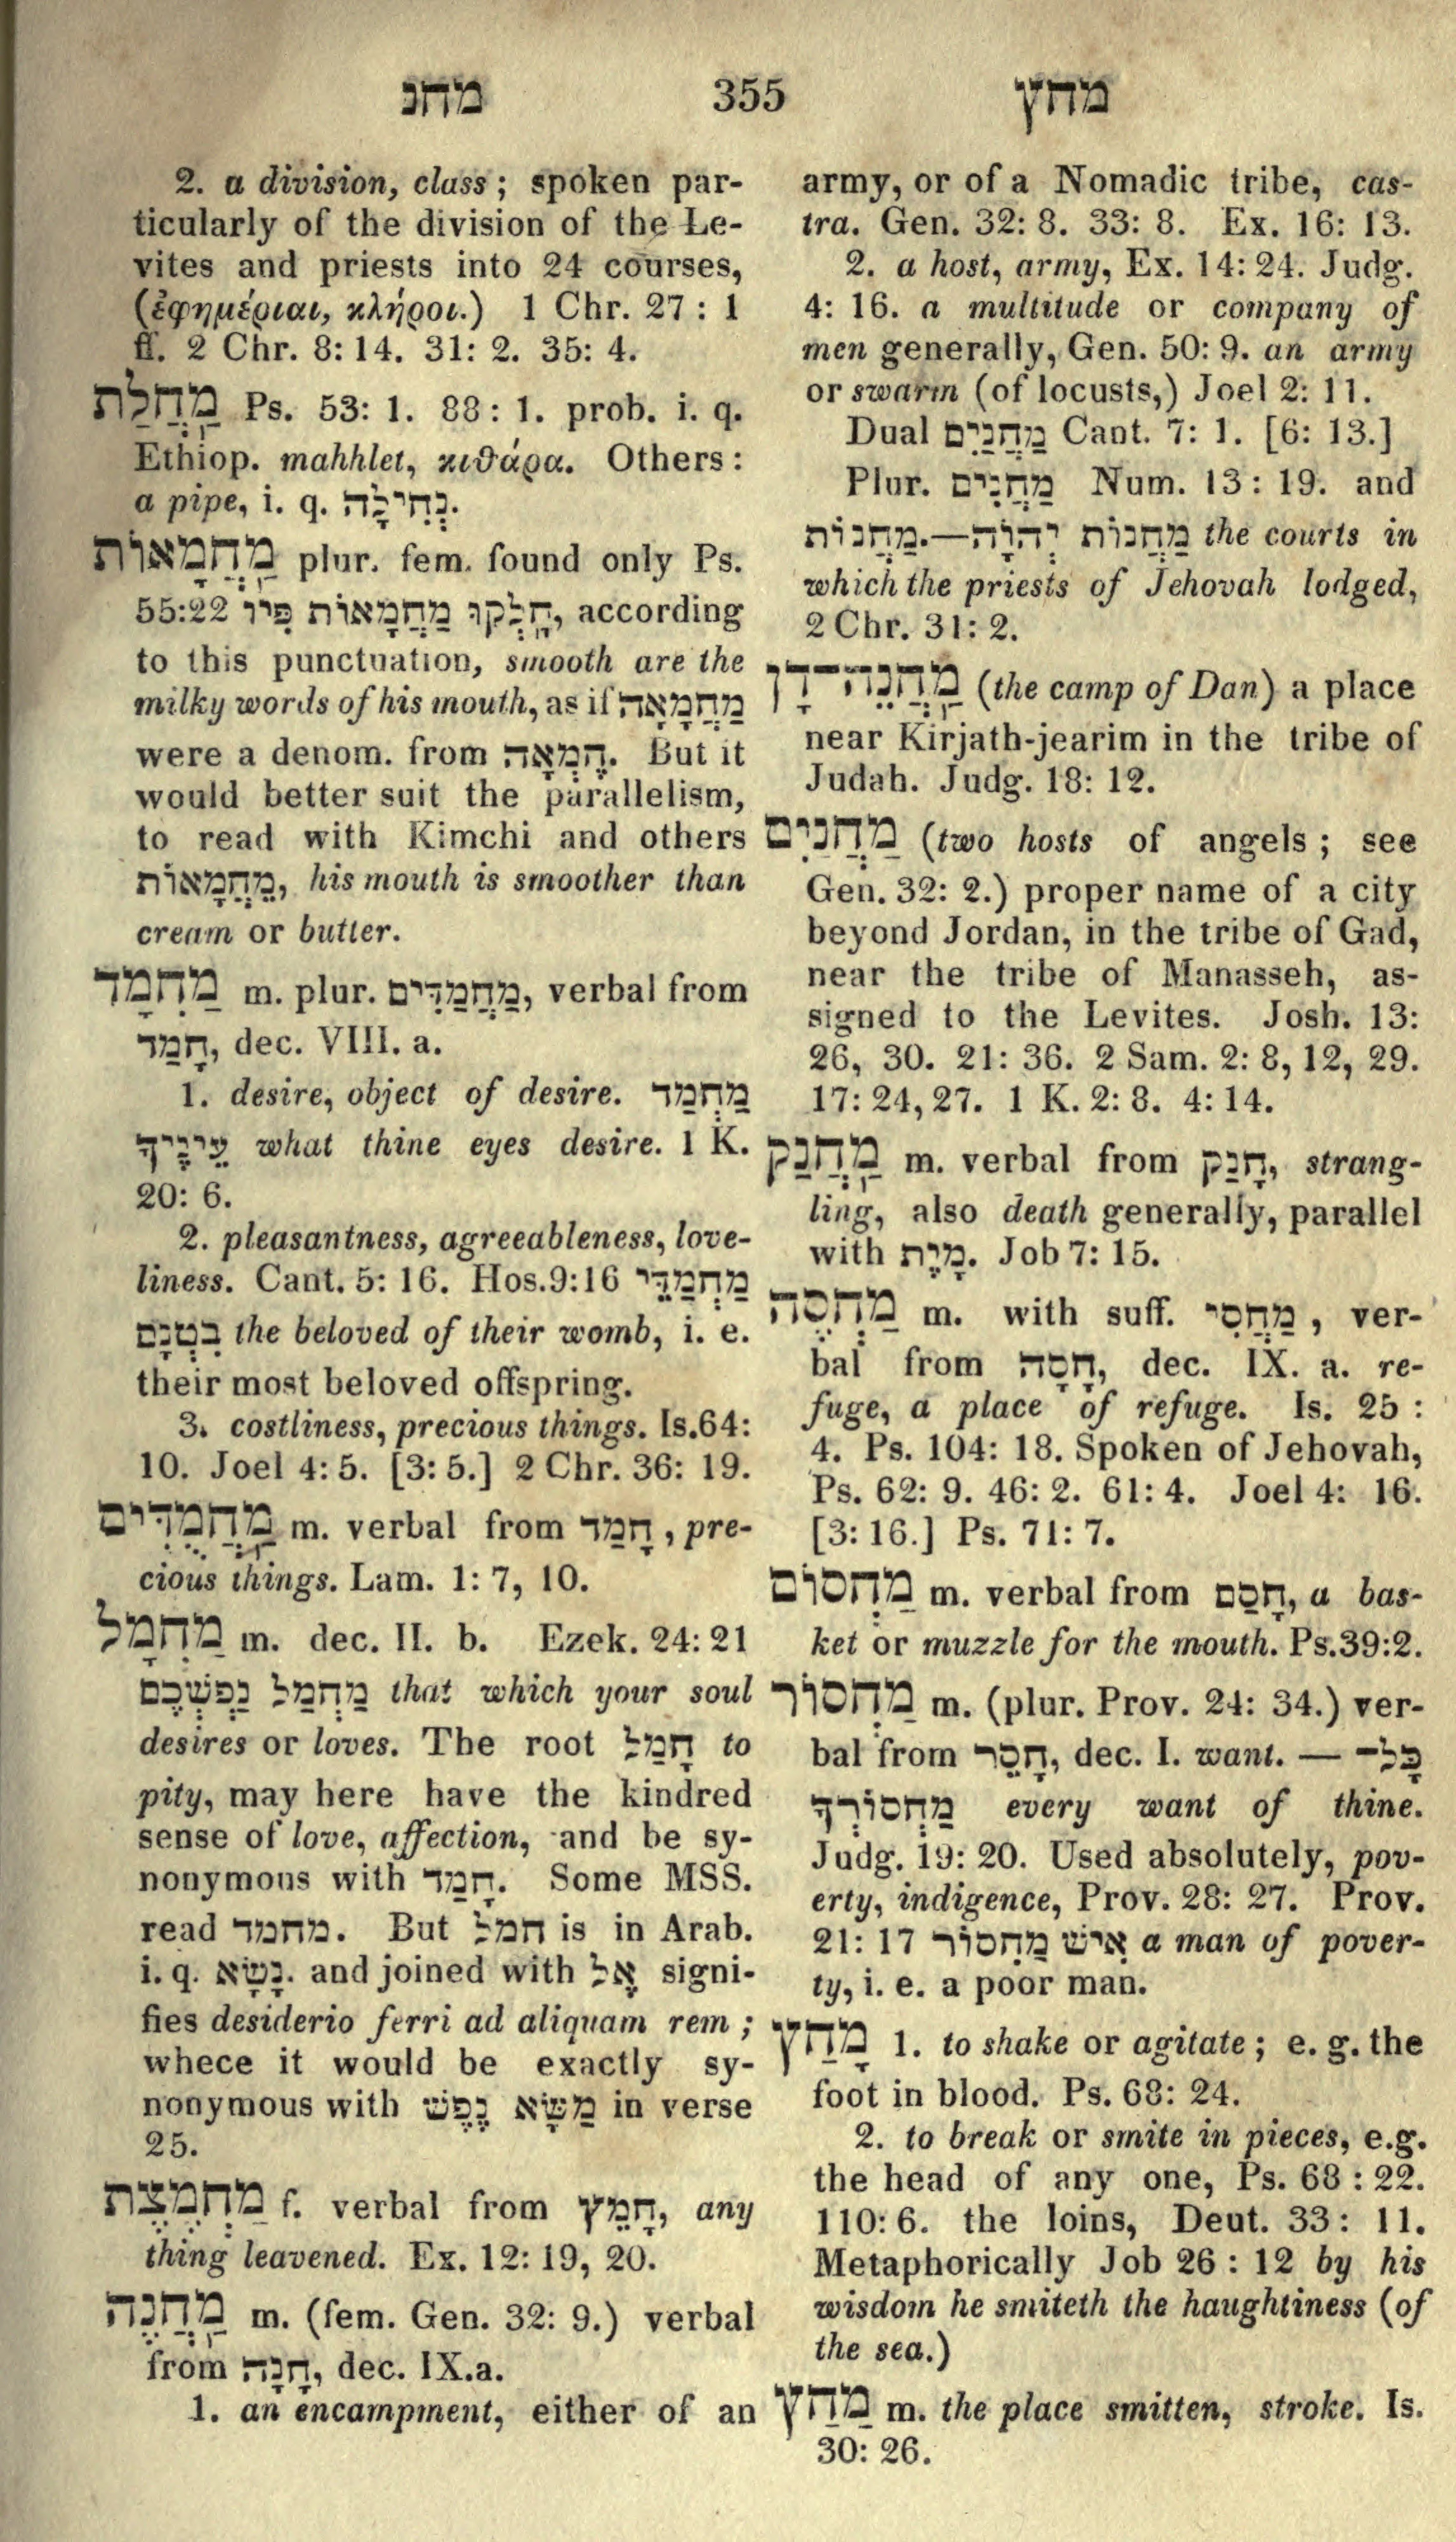 מחנ 355 מחץ
2. a division, class ; spoken par-
ticularly of the division of the Le-
vites and priests into 24 courses,
(ἐφημέριαι, κλήροι.) 1 Chr. 27 : 1
ff. 2 Chr. 8: 14. 31: 2. 35: 4.
מַֽחֲלַת Ps. 53: 1. 88 : 1. prob. i. q.
Ethiop. mahhlet, κιθάρα. Others :
a pipe, i. q. נְחִילָה.
מַֽחֲמָאוֹת plur. fem. found only Ps.
55:22 חָֽלְקוּ מַחֲמָאוֹת פִּיו, according
to this punctuation, smooth are the
milky words of his mouth, as if מַחֲמָאָה
were a denom. from חֶמְאָה. But it
would better suit the parallelism,
to read with Kimchi and others
מֵחֲמָאוֹת, his mouth is smoother than
cream or butter.
מַחְמָד m. plur. מַחֲמַדִּים, verbal from
חָמַד, dec. VIII. a.
1. desire, object of desire. מַחְמַד
עֵינֶיךָ what thine eyes desire. 1 K.
20: 6.
2. pleasantness, agreeableness, love-
liness. Cant. 5: 16. Hos.9:16 מַחְמַדֵּי
בִטְנָם the beloved of their womb, i. e.
their most beloved offspring.
3. costliness, precious things. Is.64:
10. Joel 4: 5. [3: 5.] 2 Chr. 36: 19.
מַֽחֲמֻדִּים m. verbal from חָמַד , pre-
cious things. Lam. 1: 7, 10.
מַחְמָל m. dec. II. b. Ezek. 24: 21
מַחְמַל נַפְשְׁכֶם that which your soul
desires or loves. The root חָמַל to
pity, may here have the kindred
sense of love, affection, and be sy-
nonymous with חָמַד. Some MSS.
read מחמד. But חמל is in Arab.
i. q. נָשָׂא. and joined with אֶל signi-
fies desiderio ferri ad aliquam rem ;
whece it would be exactly sy-
nonymous with מַשָּׂא נֶפֶשׁ in verse
25.
מַחְמֶצֶת f. verbal from חָמֵץ, any
thing leavened. Ex. 12: 19, 20.
מַֽחֲנֶה m. (fem. Gen. 32: 9.) verbal
from חָנָה, dec. IX.a.
1. an encampment, either of an
army, or of a Nomadic tribe, cas-
tra. Gen. 32: 8. 33: 8. Ex. 16: 13.
2. a host, army, Ex. 14: 24. Judg.
4: 16. a multitude or company of
men generally, Gen. 50: 9. an army
or swarm (of locusts,) Joel 2: 11.
Dual מַחֲנַיִם Cant. 7: 1. [6: 13.]
Plur. מַחֲנִים Num. 13 : 19. and
מַחֲנוֹת.—מַחֲנוֹת יְהוָֹה the courts in
which the priests of Jehovah lodged,
2 Chr. 31: 2.
מַֽחֲנֵה־דָן (the camp of Dan) a place
near Kirjath-jearim in the tribe of
Judah. Judg. 18: 12.
מַחֲנַיִם (two hosts of angels ; see
Gen. 32: 2.) proper name of a city
beyond Jordan, in the tribe of Gad,
near the tribe of Manasseh, as-
signed to the Levites. Josh. 13:
26, 30. 21: 36. 2 Sam. 2: 8, 12, 29.
17: 24, 27. 1 K. 2: 8. 4: 14.
מַֽחֲנַק m. verbal from חָנַק, strang-
ling, also death generally, parallel
with מָוֶת. Job 7: 15.
מַחְסֶה m. with suff. מַחֲסִי , ver-
bal from חָסָה, dec. IX. a. re-
fuge, a place of refuge. Is. 25 :
4. Ps. 104: 18. Spoken of Jehovah,
Ps. 62: 9. 46: 2. 61: 4. Joel 4: 16.
[3: 16.] Ps. 71: 7.
מַחְסוֹם m. verbal from חָסַם, a bas-
ket or muzzle for the mouth. Ps.39:2.
מַחְסוֹר m. (plur. Prov. 24: 34.) ver-
bal from חָסֵר, dec. I. want. — כָּל־
מַחְסוֹרְךָ every want of thine.
Judg. 19: 20. Used absolutely, pov-
erty, indigence, Prov. 28: 27. Prov.
21: 17 אִישׁ מַחְסוֹר a man of pover-
ty, i. e. a poor man.
מָחַץ 1. to shake or agitate ; e. g. the
foot in blood. Ps. 68: 24.
2. to break or smite in pieces, e.g.
the head of any one, Ps. 68 : 22.
110: 6. the loins, Deut. 33: 11.
Metaphorically Job 26 : 12 by his
wisdom he smiteth the haughtiness (of
the sea.)
מַחַץ m. the place smitten, stroke. Is.
30: 26.